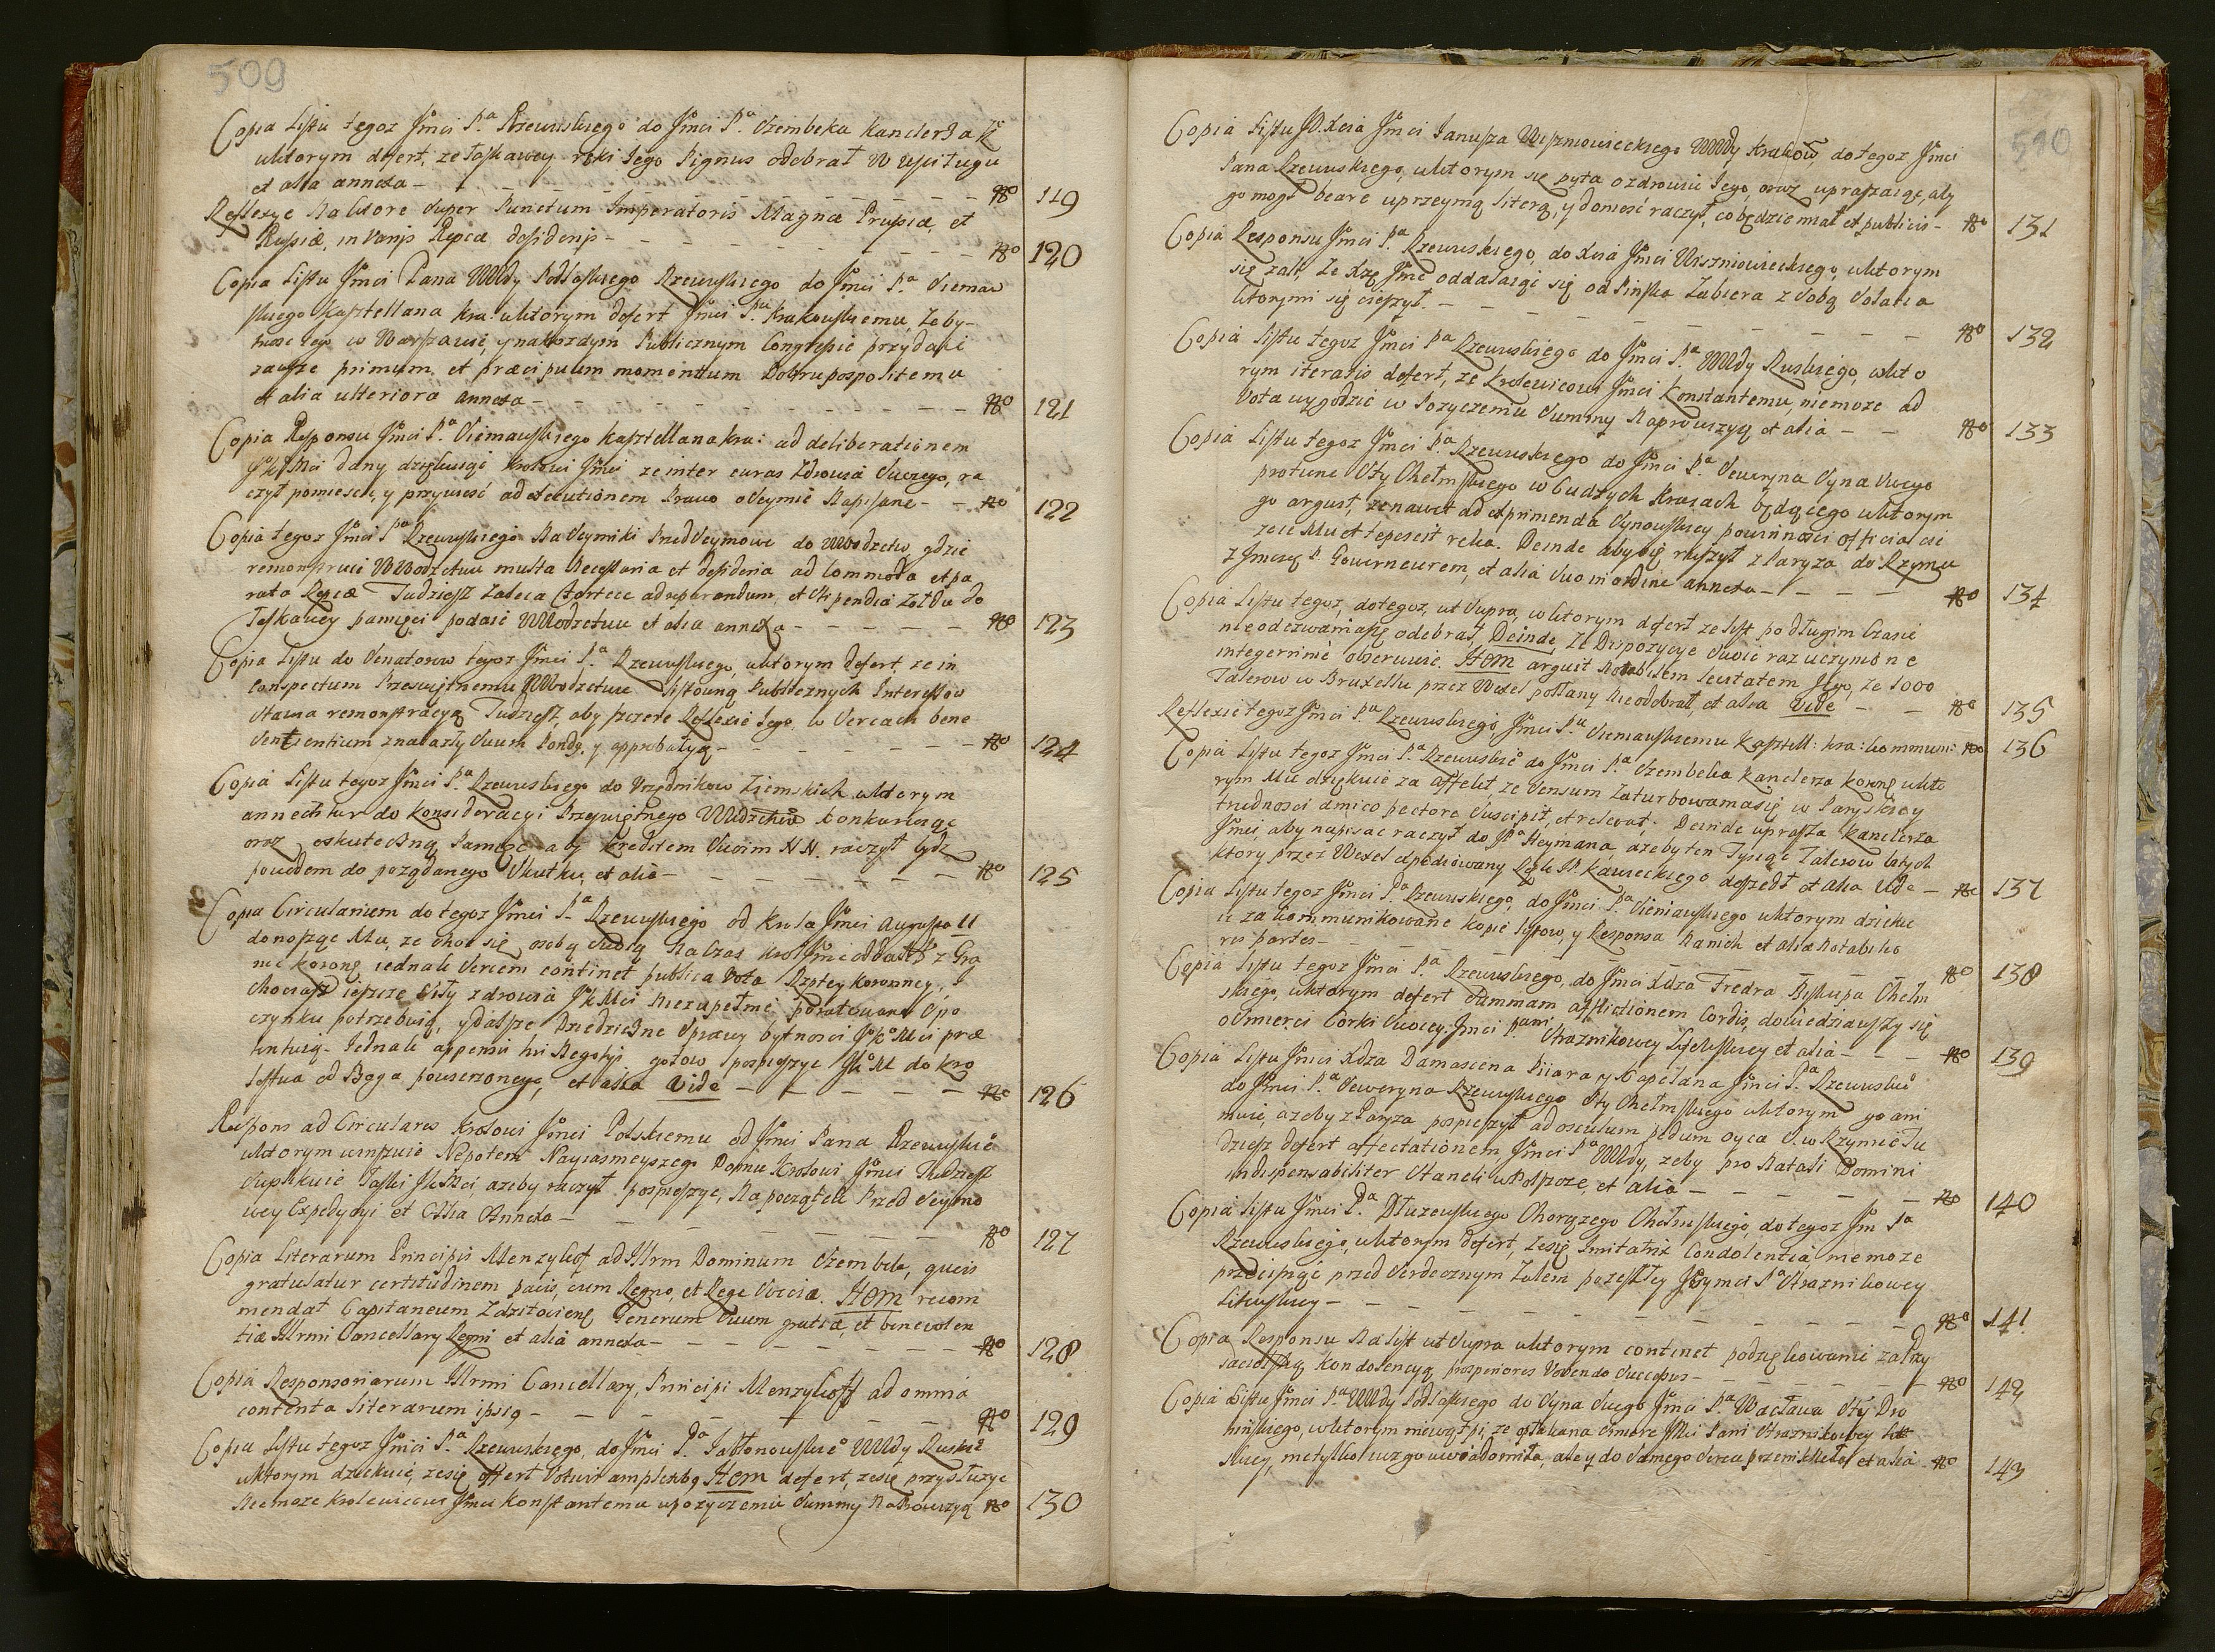 509
Copia Listu tegoz Jmci P.a Rzewuskiego do Jmci P.a Szembeka Kanclerza
wktorym defert, ze łaskawey ręki Jego Pignus odebrał w
et alia annexa — No 119
Reflexye Naktore super Punctum Imperatoris Magnæ Prussiæ, et
Russiæ, in varijs Reipcæ desiderijs — No 120
Copia Listu Jmci Pana Wwdy Podlaskiego Rzewuskiego do Jmci P.a Sieniaw
skiego Kasztellana kra: wktorym defert Jmci P.u Krakowskiemu, ze by-
tnosc Jego w Warszawie, y nakozdym Publicznym Congressie przydaie
zawsze primum et præcipuum momentum Dobrupospolitemu
et alia ulteriora annexa — No 121
Copia Responsu Jmci P.a Sieniawskiego Kasztellana kra: ad deliberationem
JkMci dany, dziękuiąc krolowi Jmci ze inter curas Zdrowia Swoiego, ra
czył pomiescic, y przywiesć ad executionem Prawo oSeymie Napisane — No 122
Copia tegoz Jmci P.a Rzewuskiego Na Seymiki PrzedSeymowe do Wwodztw, gdzie
remonstruie Wwodztwu multa Necessaria et desideria ad commoda et pa
rata Reipcæ Tudziesz Zaleca Fortece ad reparandum, et stipendia Zołdu do
Łaskawey pamięci podaie Wwodztwu et alia annexa — No 123
Copia Listu do Senatorow tegoz Jmci P.a Rzewuskiego, wktorym defert ze in
conspectum Przeswiętnemu Wwodztwu Listowną Publicznych Interessow
stawia remonstracyą Tudziesz, aby szczere Reflexie Jego w Sercach bene
sentientium znalazły Suum Pondg, y approbatyą — No 124
Copia Listu tegoz Jmci P.a Rzewuskiego do Vrzędnikow Ziemskich wktorym
annectitur do Konsideracyi Przeswiętnego Wwdztwa konkuruiąc
oraz oskuteczną Pamięc aby kreditem Swoim NN. raczył bydz
powodem do poządanego Skutku, et alia — No 125
Copia Circularium do tegoz Jmci P.a Rzewuskiego od Krola Jmci Augusta II
donosząc Mu, ze choc się osobą Swoią Na Czas Krol Jmc oddalił z Gra
nic koronę iednak Sercem continet publica Vota Rzptey koronney,
chociasz ieszcze Siły zdrowia JkMci Niezupełnie poratowane Spo
czynku potrzebuią, y dalsze Dziedziczne Sprawy bytnosci JKoMci præ
tenturą. Jednak appensis his Negotijs gotow Spospieszyc JKoM do kro
lestwa od Boga powierzonego, et alia Vide — No 126
Respons ad Circulares Krolowi Jmci Polskiemu od Jmci Pana Rzewuskie
wktorym winszuie Nepotem Nayiasnieyszego Domu Krolowi Jmci Tudziesz
Suplikuie Łaski JkMci, azeby raczył pospieszyc, Na początek Przed Seymo
wey Expedycyi et Alia Annexa — No 127
Copia Literarum Principis Menzykof ad Illrm Dominum Szembek, queis
gratulatur certitudinem pacis, cum Regno, et Rege Sveciæ. Item recom
mendat Capitaneum Zdzitocienę Generum Suum gratiæ, et benevolen
tiæ Illrmi Cancellary Regni et alia annexa — No 128
Copia Responsoriarum Illrmi Cancellary, Principi Menzykoff ad omnia
contenta literarum ipsig — No 129
Copia Listu tegoz Jmci P.a Rzewuskiego, do Jmci P.a Jabłonowskie Wwdy Ruskie
wktorym dziekuie, zesię offert Votivis amplexibg Item defert, zesię przysłuzyc
Niemoze krolewicowi Jmci Konstantemu wpozyczeniu Summy NaProwizyą No 130
510
Copia Listu JO Xcia Jmci Janusza Wiszniowieckiego Wwdy Krakow, do tegoz Jmci
Pana Rzewuskiego, wktorym się pyta o zdrowie Jego, oraz upraszaiąc, aby
go mogł beare uprzeymą literą, y donieść raczył, co będzie miał et publicis — No 131
Copia Responsu Jmci P.a Rzewuskiego, do Xcia Jmci Wiszniowieckiego, wktorym
się zali, ze Xżę Jmc oddalaiąc się od Pinska Zabiera z Sobą Solatia
ktorymi się cieszył. — No 132
Copia Listu tegoz Jmci P.a Rzewuskiego do Jmci P.a Wwdy Ruskiego, wkto
rym iteratis defert, ze krolewicowi Jmci Konstantemu, niemoze ad
Vota wygodzic w Pozyczeniu Summy Naprowizyą et alia — No 133
Copia Listu tegoz Jmci P.a Rzewuskiego do Jmci P.a Seweryna Syna Swego
protunc Sty Chełmskiego w Cudzych Kraiach będącego wktorym
go arguit, ze nawet ad exprimenda Synowskiey powinnosci officia
zcie Mu et tepescit ręka. Deinde aby się ruszył z Paryza do Rzymu
z Jmcią P. Gouwerneurem, et alia Suo in ordine annexa — No 134
Copia Listu tegoz, do tegoz, ut Supra, w ktorym defert ze List po długim Czasie
nieodezwaniasię odebrał, Deinde, Ze Dispozycye Swoie raz uczynione
integerrimè obserwuie. Item arguit Notabilem levitatem Jego, ze 1000
Talerow w Bruxellu przez Wexel posłany Nieodebrał, et alia Vide — No 135
Reflexie tegoz Jmci P.a Rzewuskiego Jmci P.u Sieniawskiemu Kasztell: kra: kommuni: No 136
Copia Listu tegoz Jmci P.a Rzewuskie do Jmci P.a Szembeka Kanclerza koronę wkto
rym Mu dziękuie za affekt, ze Sensum Zaturbowaniasię w Paryskiey
trudnosci amico pectore Suscipit, et relevat. Deinde uprasza Kanclerza
Jmci, aby napisac raczył do JP.a Heymana, azeby ten Tysiąc Talerow bitych
ktory przez Wexel expediowany Rąk JP. Kawieckiego doszedł et alia Vide — No 137
Copia Listu tegoz Jmci P.a Rzewuskiego, do Jmci P.a Sieniawskiego wktorym dzieku
ie za kommunikowane kopie listow, y Responsa Nanich et alia Notabilio
ris partes — No 138
Copia Listu tegoz Jmci P.a Rzewuskiego, do Jmci Xdza Fredra Biskupa Chełm
skiego, wktorym defert Summam afflictionem Cordis, dowiedziawszy się
oSmierci Corki Swoiey, Jmci Pani Straznikowey Litewskiey et alia — No 139
Copia Listu Jmci Xdza Damascena Piiara y Kapelana Jmci P.a Rzewuskie
do Jmci P.a Seweryna Rzewuskiego Sty Chełmskiego wktorym go ani
muie, azeby z Paryza pospieszył ad osculum pedum Oyca S. w Rzymie Tu
dziesz defert affectationem Jmci P.a Wwdy, zeby pro Natali Domini
indispensabiliter Stanęli wPolszcze, et alia — No 140
Copia Listu Jmci P.a Dłuzewskiego Chorązego Chełmskiego, do tegoz Jm P.a
Rzewuskiego, wktorym defert, zesię Imitatrix Condolentia niemoze
przecisnąć przed Serdecznym Zalem pozeszłey Jeymci P.a Straznikowey
Litewskiey — No 141
Copia Responsu Na list ut Supra wktorym continet podziękowanie zaPrzy
iacielską kondolencyą prosperiores Vovendo Successus — No 142
Copia Listu Jmci P.a Wwdy Podlaskiego do Syna Swego Jmci P.a Wacława Sty Dro
hinskiego, wktorym niewątpi, ze opłakana Smierć JMci Pani Straznikowey Lite
skiey, nietylko iuz go uwiadomiła, ale y do Samego Serca przeniknęła et alia No 143